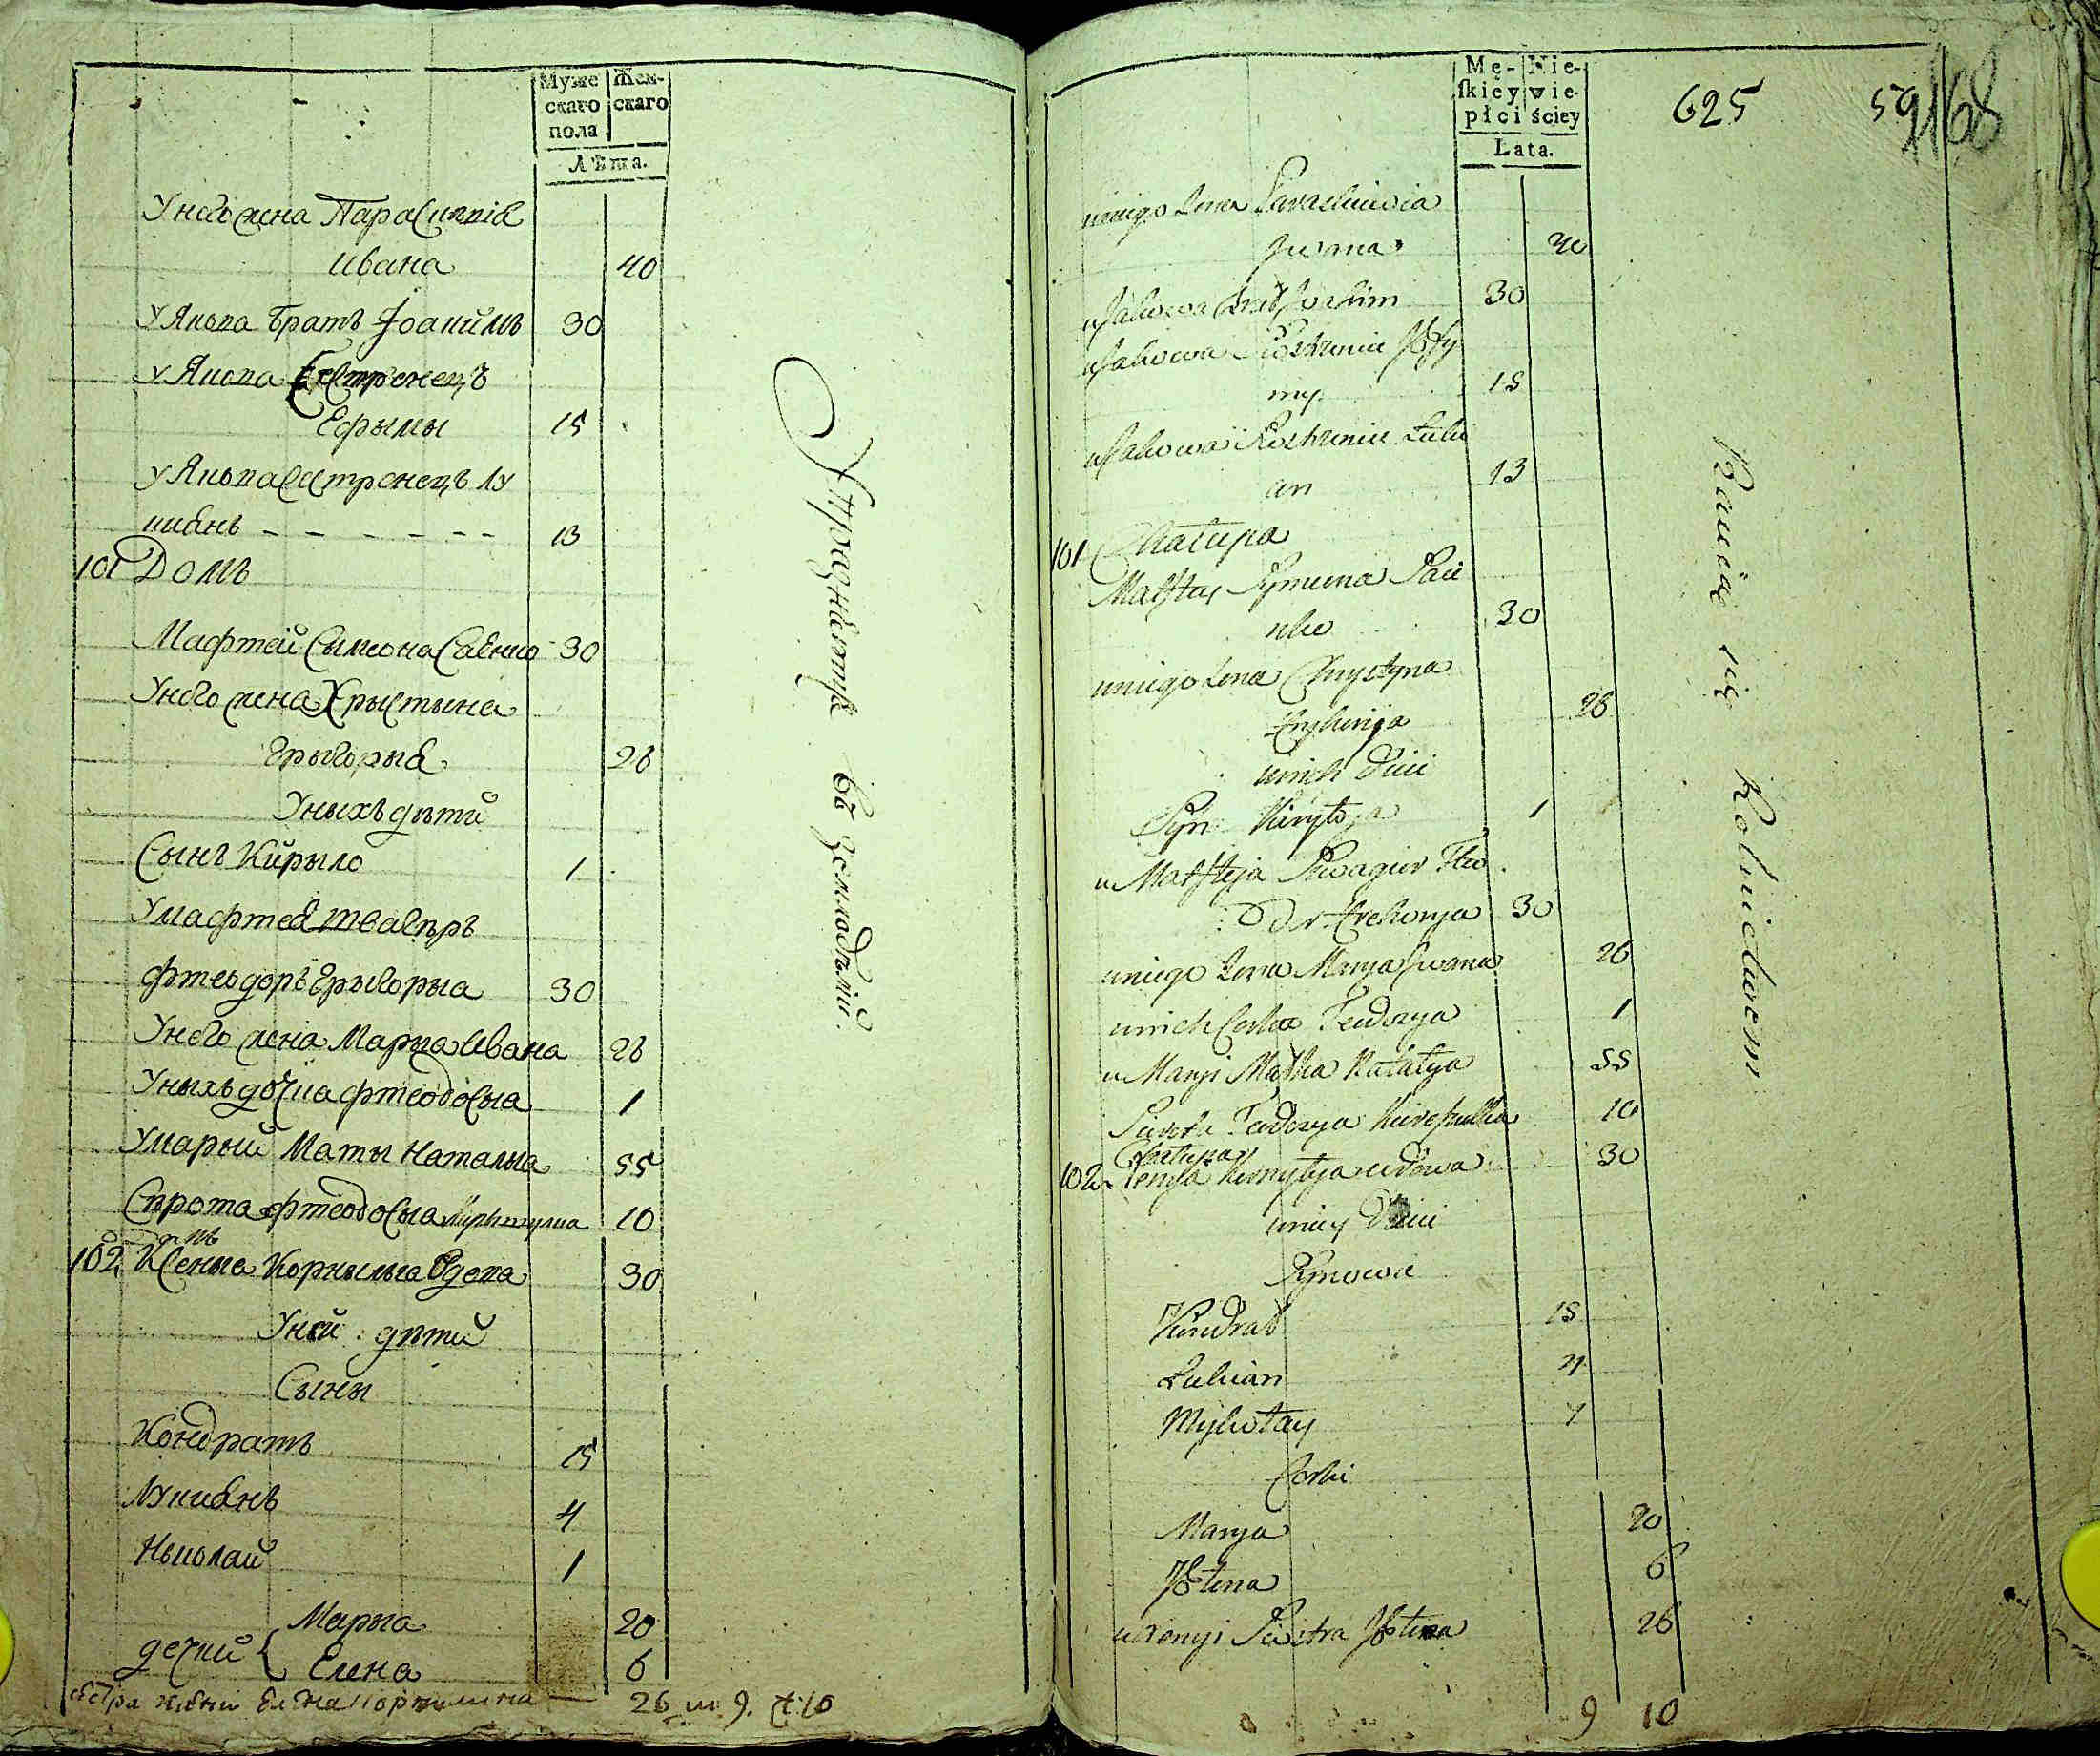 Муже
скаго
пола
Жен-
скаго
Лѣта.
Унего жена Параскивія
Ивана 40
У Якова братъ Іоакимъ 30
У Якова Сестренецъ
Ефымы 15
У Якова Сестренецъ Лу
киянъ - - - - - - 13
101 Домъ
Мафтей Сымеона Саенко 30
Унего жена Хрыстына
Грыгорыя 28
Уныхъ дѣтий
Сынъ Кирыло 1
У мафтея шваґръ
Фтеодоръ Грыгорыа 30
Унего жена Марыа Ивана 26
Уныхъ дочка фтеодосыа 1
Умарыи Маты Наталыа 55
Сырота фтеодосыа 10
102. Ксеныа Корнылыа Вдова 30
Уней дѣтий
Сыны
Кондратъ 15
Лукиянъ 4
Ныколай 1
дочки { Марыа 20
Елена 6
сестра Елена 26 м. 9. ж. 10
Упражняется въ земледѣлии.
Mę-
ſkiey
płci
Nie-
wie-
ściey
Lata.
625
59
168
uniego Zona Paraskiewia
Iwana 40
u Jakowa Brat Joakim 30
u Jakowa Siostrzeniec Jefy
my 15
u Jakowa Siostrzeniec Łuki
an 13
101 Chałupa
Matftey Symeona Saie
nko 30
uniego Zona Chrystyna
Hryhorija 28
unich dzieci
Syn Kiryło 1
u Matfteja Szwagier Fteo
dor Hrehorya 30
uniego Zona Marya Iwana 26
unich Corka Teodozya 1
u Maryi Matka Natalya 55
Sierota Teodozya 10
Chałupa
102. Xenja Kornyłyja wdowa 30
uniey dzieci
Synowie
Kondrat 15
Łukian 4
Mykołay 1
Corki
Marya 20
Jełena 6
u Xenyi Siostra Jełena 26
9 10
Bawią się Rolnictwem